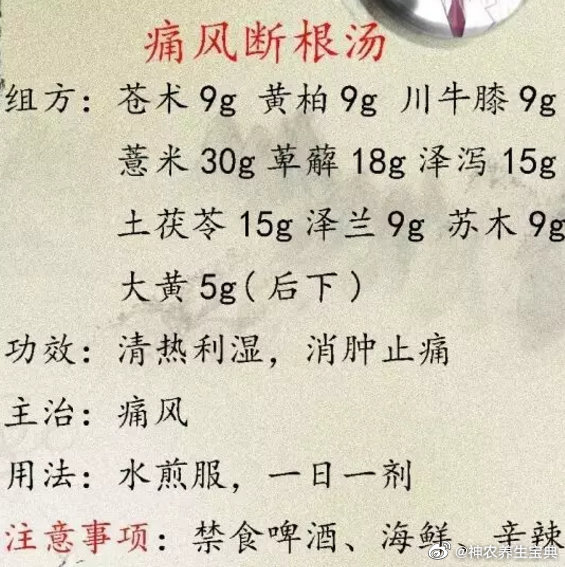 痛风断根汤
组方：苍术9g 黄柏9g 川牛膝9g
薏米30g 萆薢18g 泽泻15g
土茯苓15g 泽兰9g 苏木9g
大黄5g(后下)
功效：清热利湿，消肿止痛
主治：痛风
用法：水煎服，一日一剂
注意事项：禁食啤酒、海鲜、辛辣
@神农养生宝典